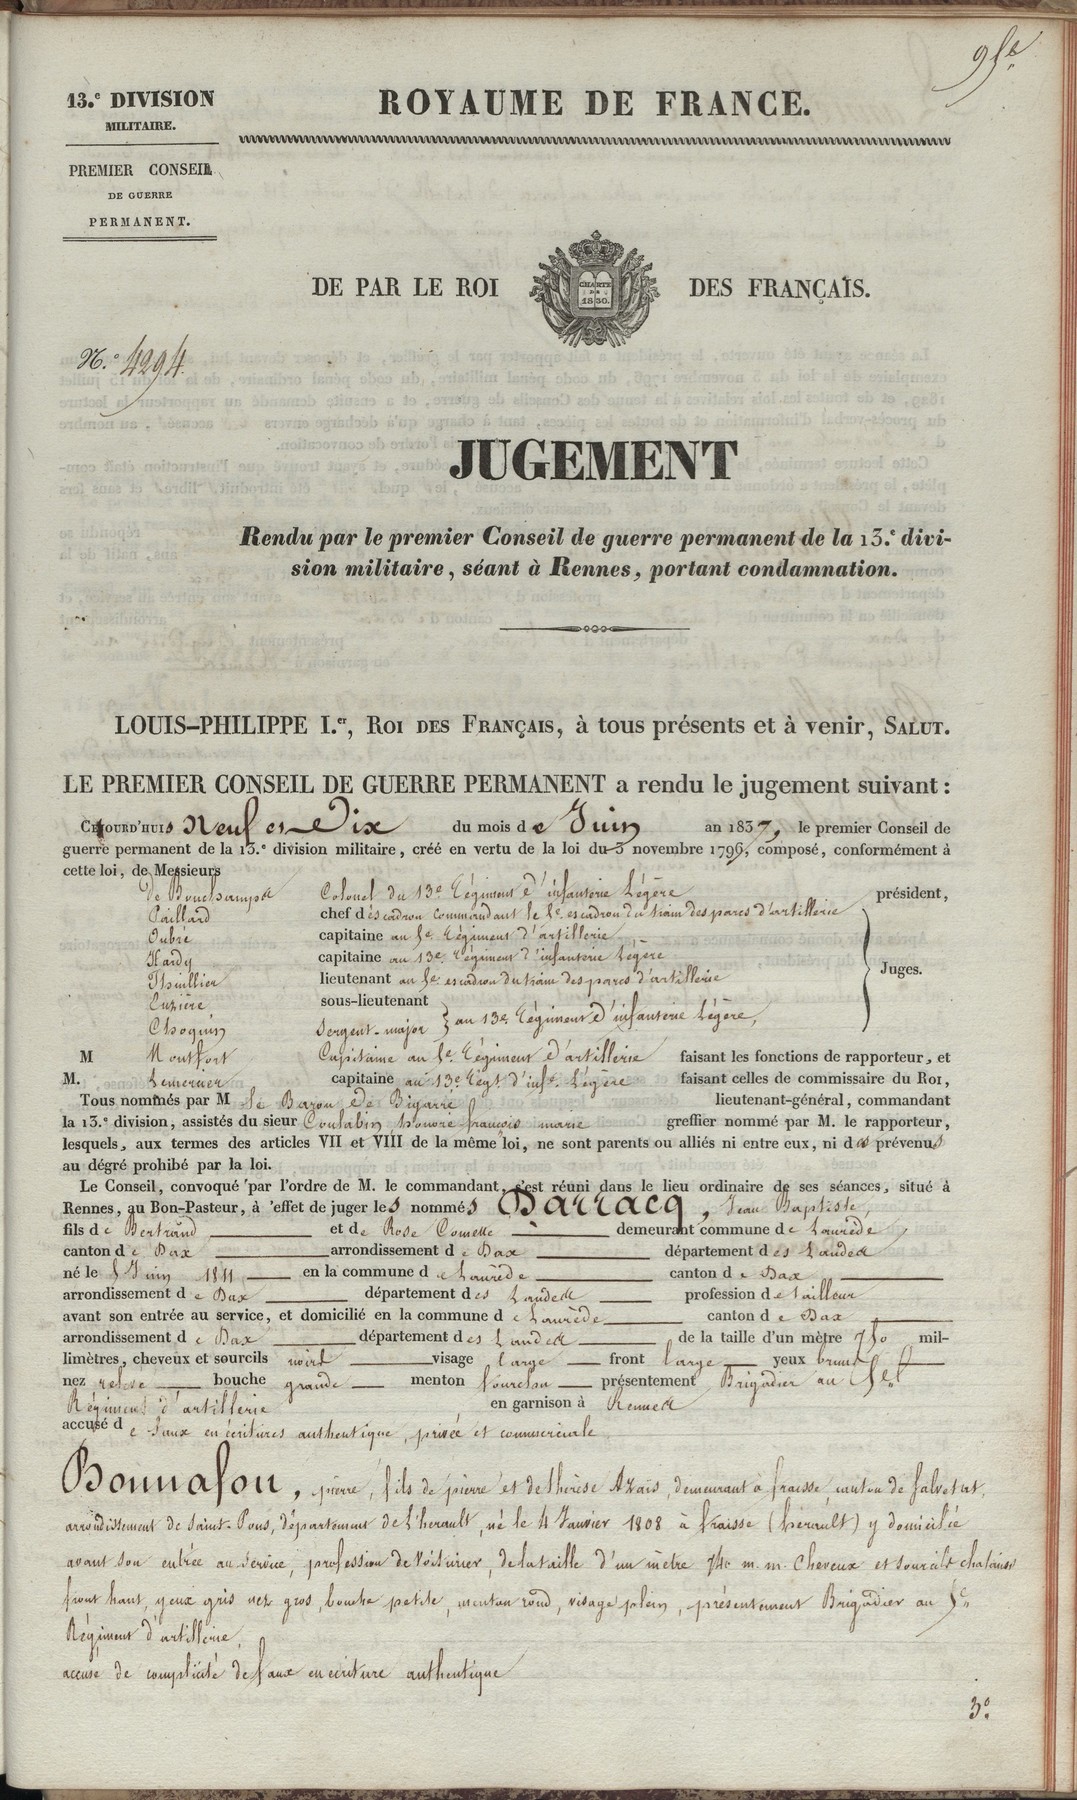 13.e DIVISION
MILITAIRE.
PREMIER CONSEIL
DE GUERRE
PERMANENT.
ROYAUME DE FRANCE.
DE PAR LE ROI
CHARTE
DE
1830.
DES FRANÇAIS.
N.o 4294.
JUGEMENT
Rendu par le premier Conseil de guerre permanent de la 13.e divi-
sion militaire, séant à Rennes, portant condamnation.
LOUIS-PHILIPPE I.er, ROI DES FRANÇAIS, à tous présents et à venir, SALUT.
LE PREMIER CONSEIL DE GUERRE PERMANENT a rendu le jugement suivant :
CEJOURD'HUIS Neuf et Dix du mois de Juin an 1837, le premier Conseil de
guerre permanent de la 13.e division militaire, créé en vertu de la loi du 3 novembre 1796, composé, conformément à
cette loi, de Messieurs
de Bouchamps Colonel du 13e Régiment d'infanterie Légère président,
Paillard chef d'escadron commandant le 5e escadron du train des parcs d'artillerie
Oubré capitaine au 5e Régiment d'artillerie
Hardy capitaine au 13e Régiment d'infanterie Légère
Thuillier lieutenant au 5e escadron du train des parcs d'artillerie
Juges.
Luzière sous-lieutenant
Choquin Sergent-major } au 13e Régiment d'infanterie Légère,
M Montfort Capitaine au 5e Régiment d'artillerie faisant les fonctions de rapporteur, et
M. Lemernier capitaine au 13e Régt d'infie Légère faisant celles de commissaire du Roi,
Tous nommés par M le Baron de Bigarré lieutenant-général, commandant
la 13.e division, assistés du sieur Coulabin honoré françois marie greffier nommé par M. le rapporteur,
lesquels, aux termes des articles VII et VIII de la même loi, ne sont parents ou alliés ni entre eux, ni des prévenus
au dégré prohibé par la loi.
Le Conseil, convoqué par l'ordre de M. le commandant, s'est réuni dans le lieu ordinaire de ses séances, situé à
Rennes, au Bon-Pasteur, à l'effet de juger les nommés Darracq, Jean Baptiste,
fils de Bertrand et de Rose Comelle demeurant commune de Laurède
canton de Dax arrondissement de Dax département des Landes
né le 5 Juin 1811 en la commune de Laurède canton de Dax
arrondissement de Dax département des Landes profession de tailleur
avant son entrée au service, et domicilié en la commune de Laurède canton de Dax
arrondissement de Dax département des Landes de la taille d'un mètre 750 mil-
limètres, cheveux et sourcils noirs visage large front large yeux bruns
nez bouche grande menton fourchu présentement Brigadier au 5e
Régiment d'artillerie en garnison à Rennes
accusé de faux en écritures authentique, privée et commerciale
Bonnafou, pierre, fils de pierre et de thérèse Azaïs, demeurant à fraisse, canton de Salvetat,
arrondissement de Saint-Pons, département de L'hérault, né le 4 Janvier 1808 à fraisse (hérault) y domicilié
avant son entrée au service, profession de Voiturier, de la taille d'un mètre 740 m.m. Cheveux et sourcils chatains
front haut, yeux gris nez gros, bouche petite, menton rond, visage plein, présentement Brigadier au 5e
Régiment d'artillerie,
accusé de complicité de faux en écriture authentique
3o